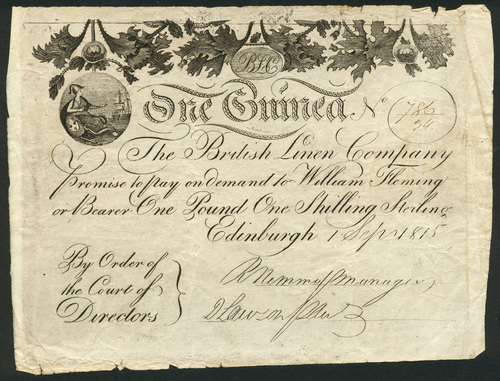 BLC
One Guinea. No 786/34
The British Linen Company
Promise to pay on demand to William Fleming
or Bearer One Pound One Shilling Sterling
Edinburgh 1 Sepr 1815
By Order of
the Court of
Directors
Manager